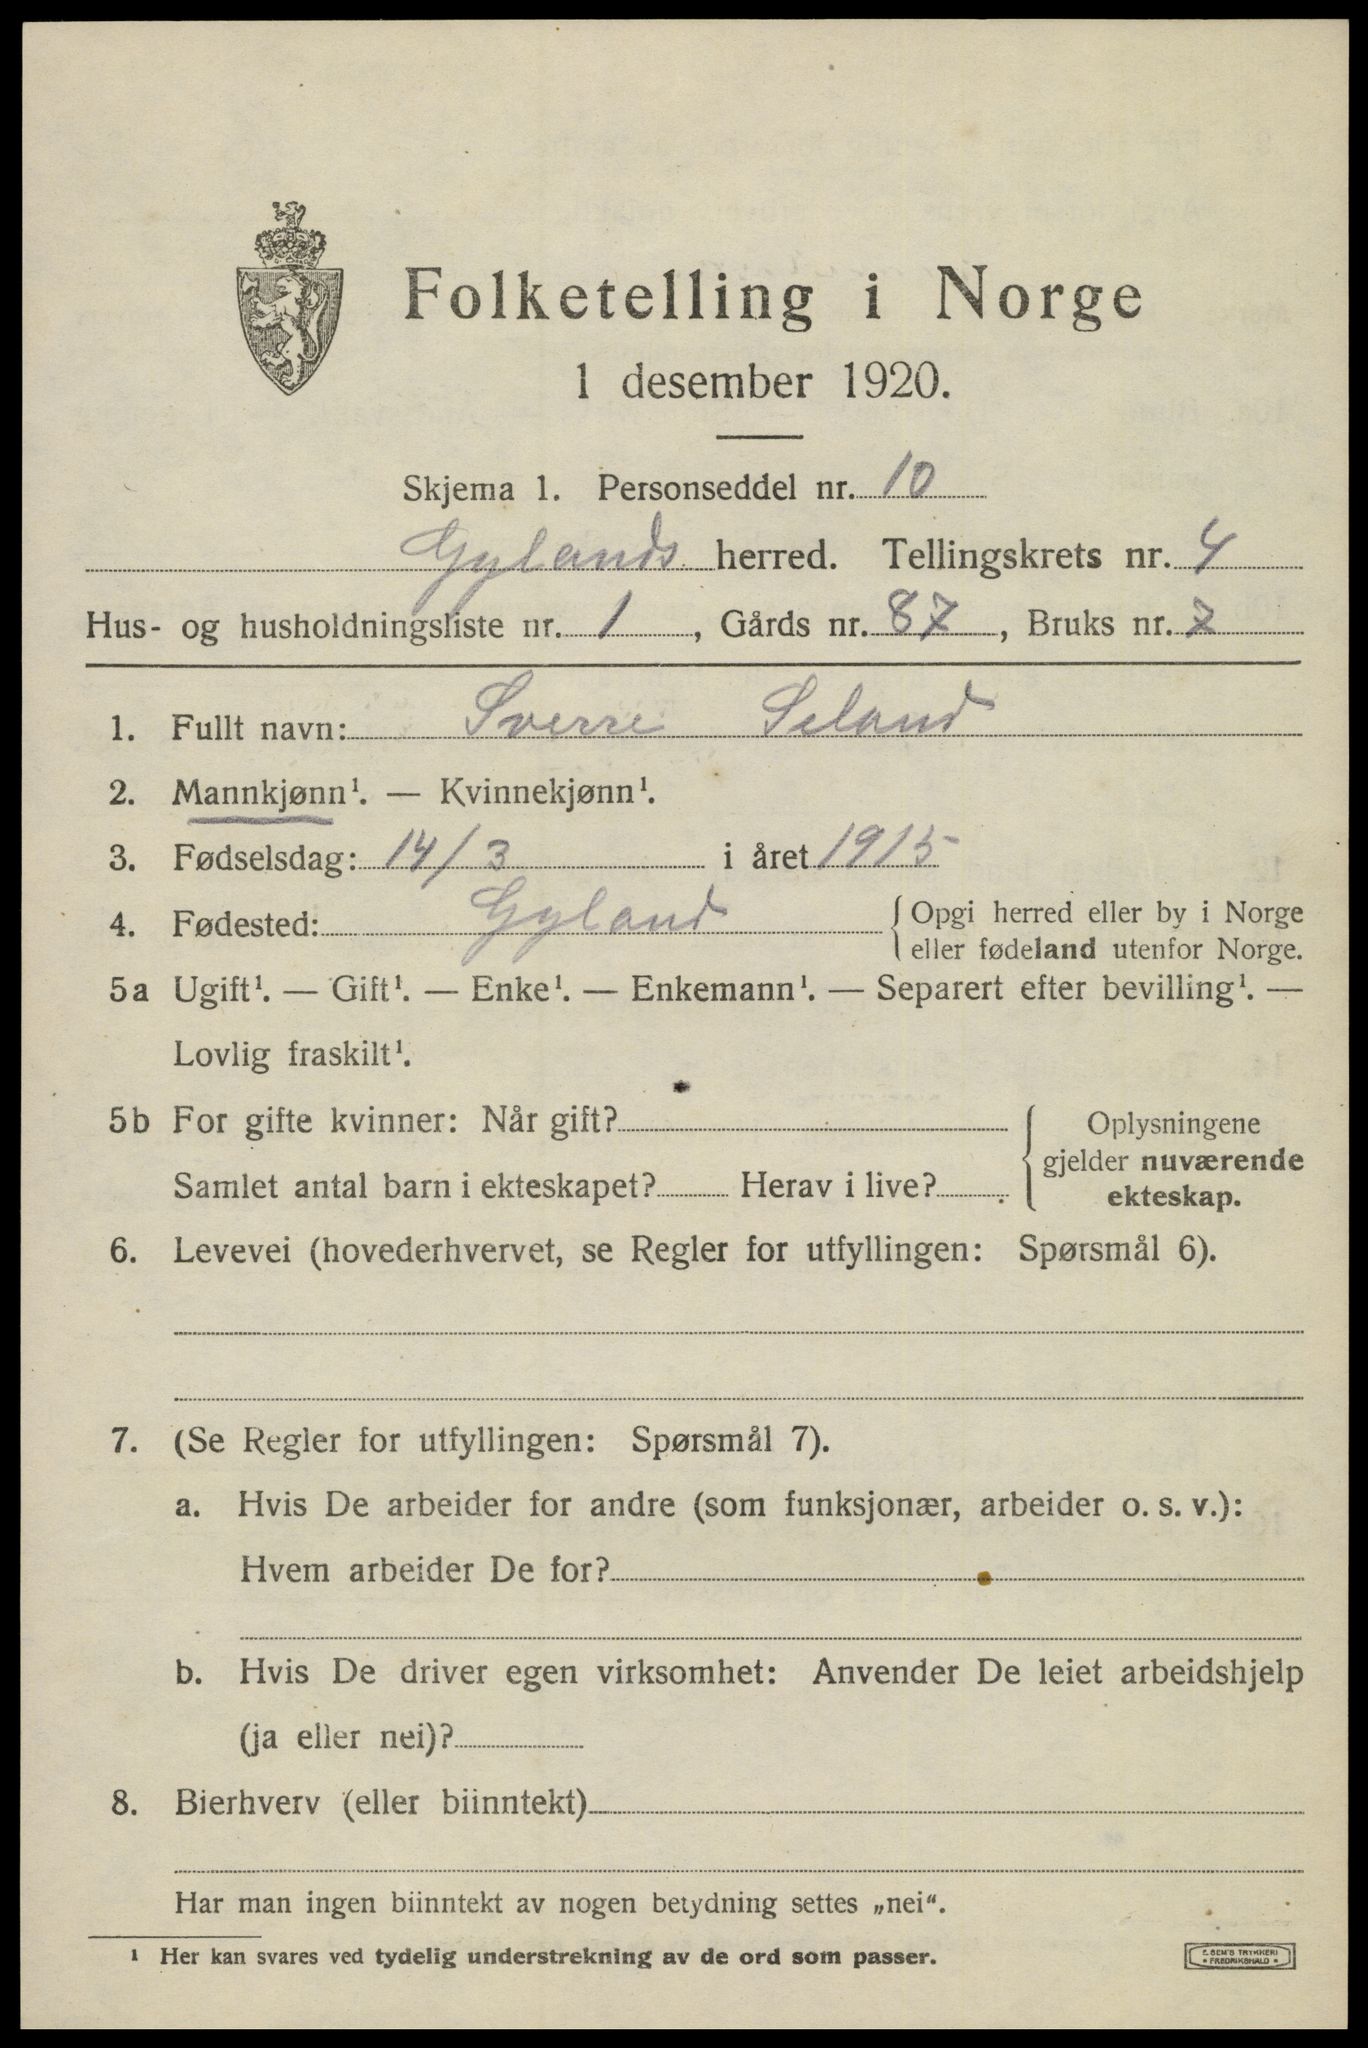 Folketelling i Norge
1 desember 1920.
Skjema 1. Personseddel nr. 10
Gylands herred. Tellingskrets nr. 4
Hus- og husholdningsliste nr. 1, Gårds nr. 87, Bruks nr. 7
1. Fullt navn: Sverre Seland
2. Mannkjønn¹. — Kvinnekjønn¹.
3. Fødselsdag: 14/3 i året 1915
4. Fødested: Gyland { Opgi herred eller by i Norge
eller fødeland utenfor Norge.
5a Ugift¹. — Gift¹. — Enke¹. — Enkemann¹. — Separert efter bevilling¹. —
Lovlig fraskilt¹.
5b For gifte kvinner: Når gift?
Samlet antal barn i ekteskapet? Herav i live?
Oplysningene
gjelder nuværende
ekteskap.
6. Levevei (hovederhvervet, se Regler for utfyllingen: Spørsmål 6).
7. (Se Regler for utfyllingen: Spørsmål 7).
a. Hvis De arbeider for andre (som funksjonær, arbeider o. s. v.):
Hvem arbeider De for?
b. Hvis De driver egen virksomhet: Anvender De leiet arbeidshjelp
(ja eller nei)?
8. Bierhverv (eller biinntekt)
Har man ingen biinntekt av nogen betydning settes „nei“.
¹ Her kan svares ved tydelig understrekning av de ord som passer.
E. SEM'S TRYKKERI
• FREDRIKSHALD •